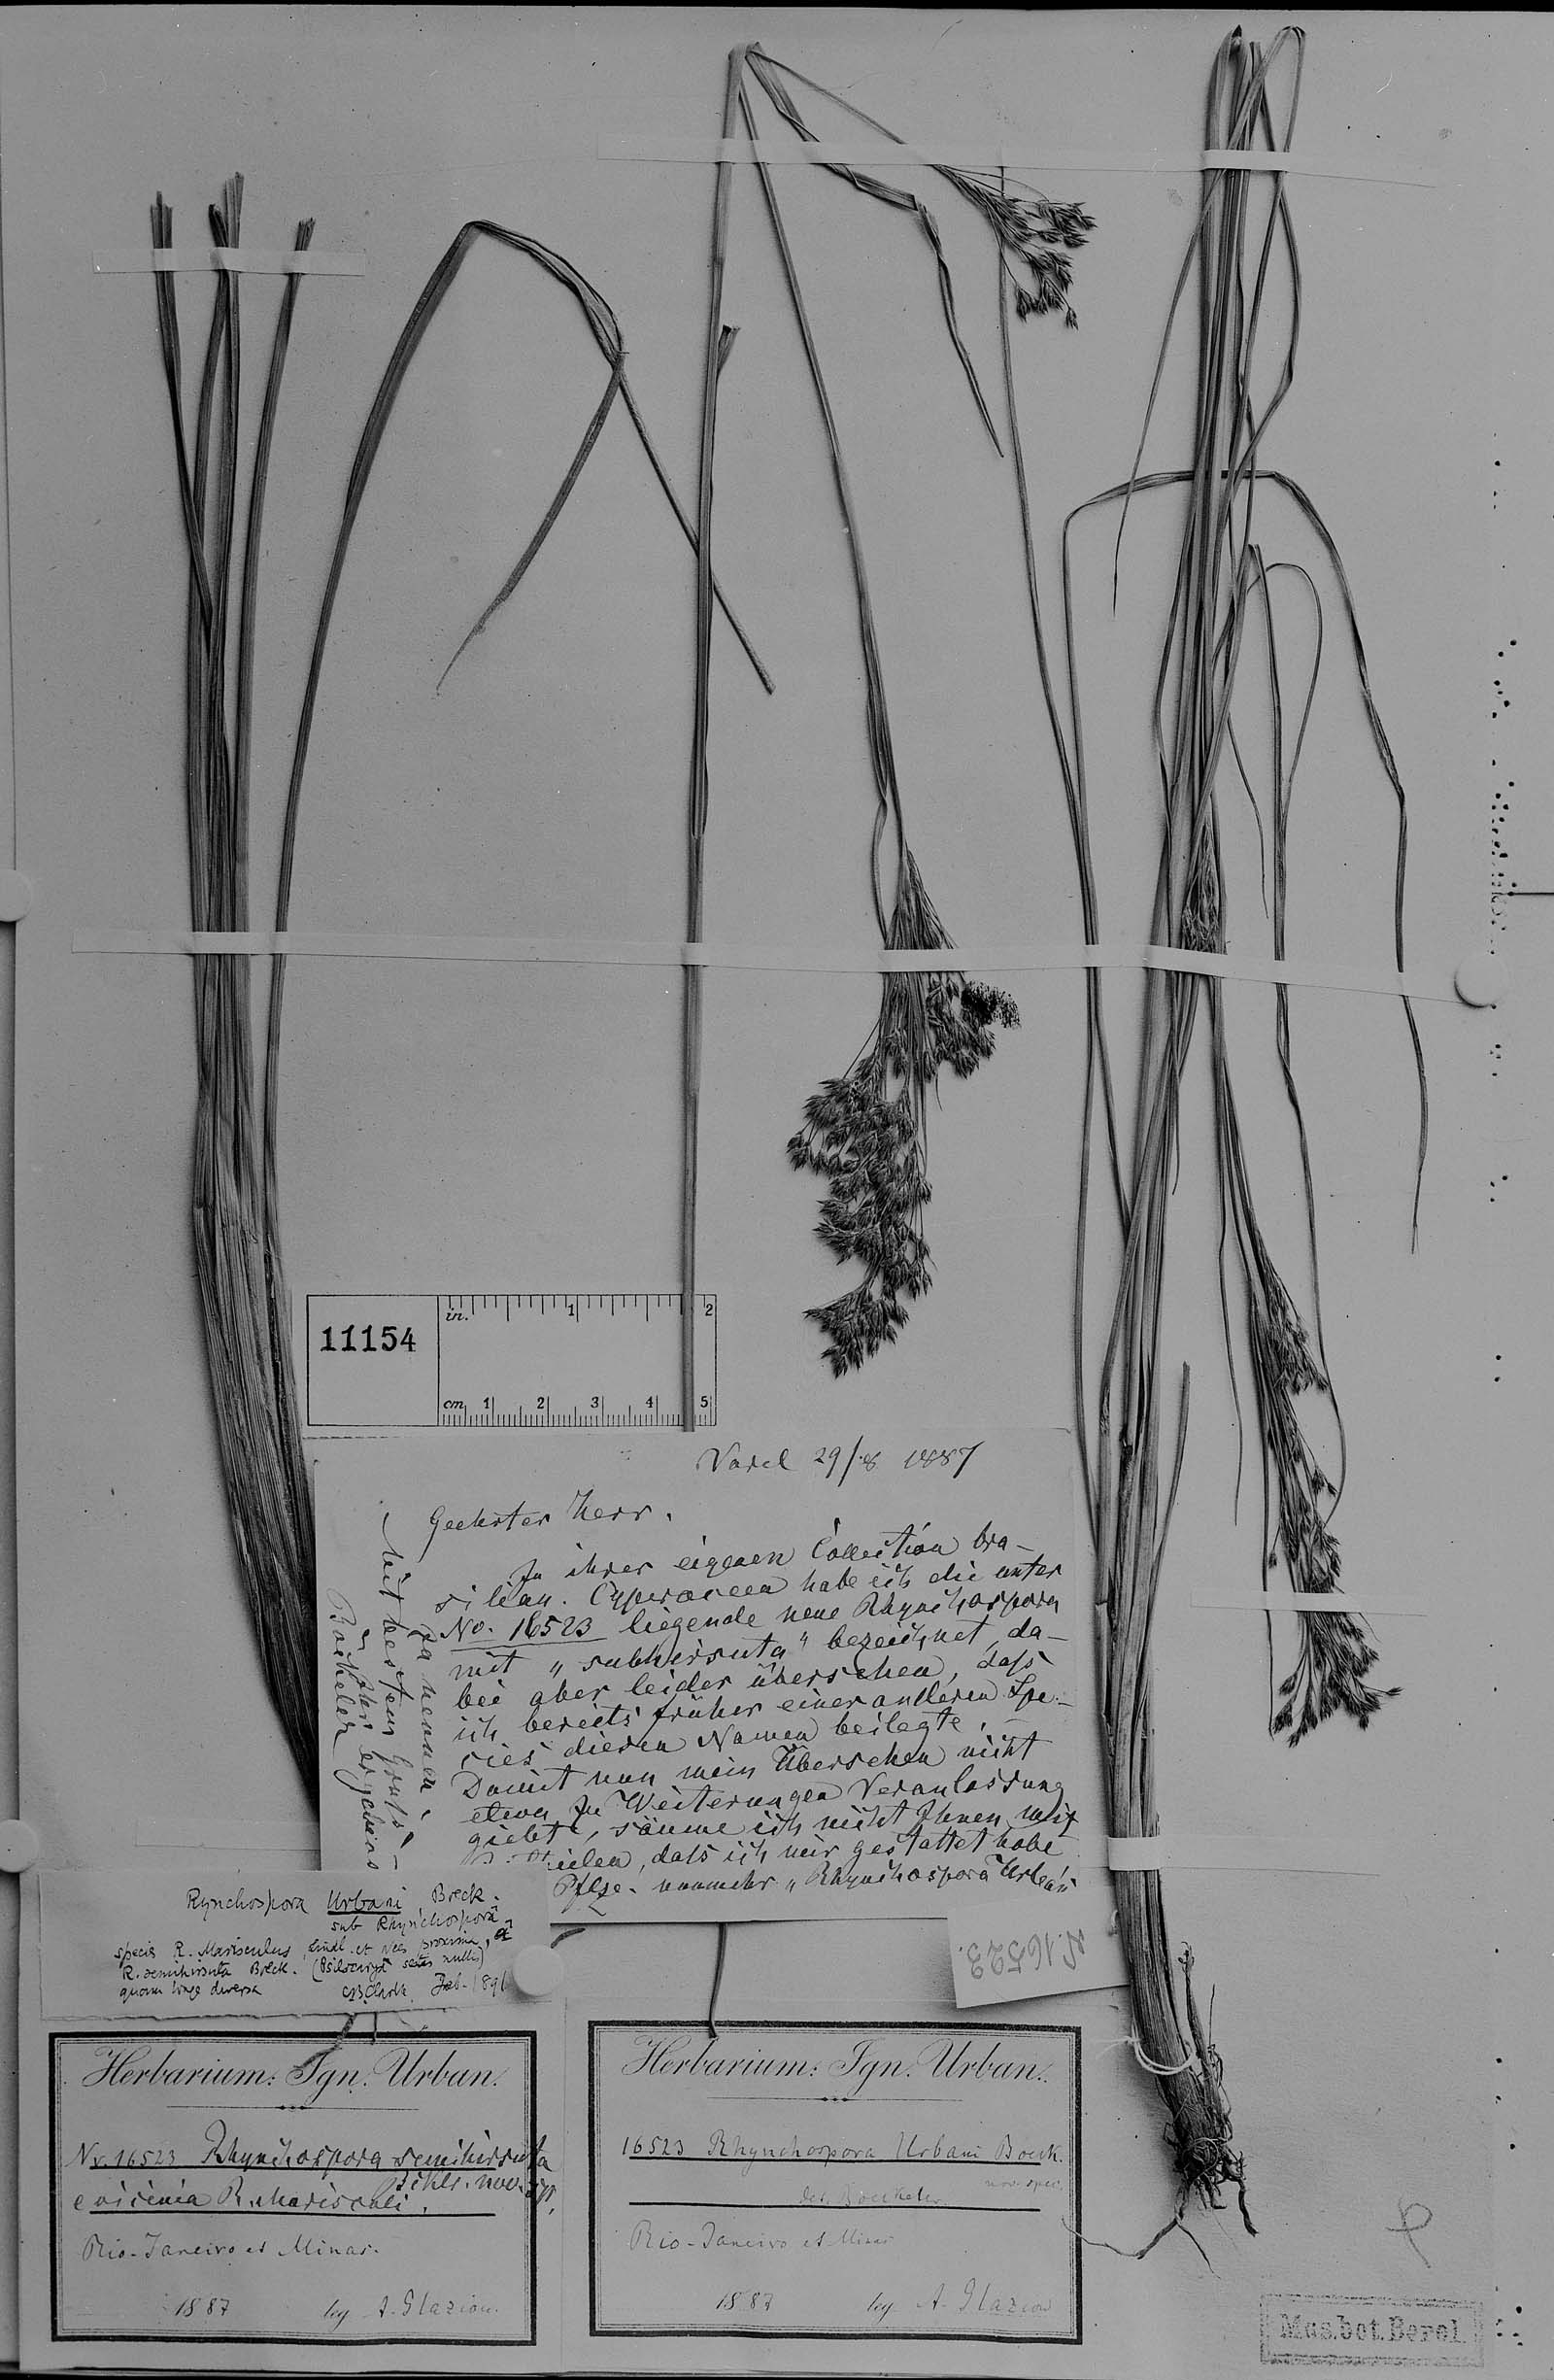 11154
in. 1 2
cm 1 2 3 4 5
Varel 29/8 1887
Geehrter Herr.
In ihrer eigenen Collection bra-
silian. Cyperaceen habe ich die unter
No. 16523 liegende neue Rhynchospora
mit „subhirsuta" bezeichnet, da-
bei aber leider übersehen, daſs
ich bereits früher einer anderen Spe-
cies diesen Namen beilegte. –
Damit nun mein Übersehen nicht
etwa zu Weiterungen Veranlassung
giebt, säume ich nicht Ihnen mit
daſs ich mir gestattet habe
Pflze. nunmehr „Rhynchospora Urbani
zu nennen.
Mit bestem Gruſs
Ihr ergebens
Böckeler
Rynchospora Urbani Boeck.
sub Rhynchospora
species R. Marisculus, Lindl. et Nees proxima, a
R. semihirsuta Boeck. (Psilocarya setis nullis)
quam longe diversa
CBClarke Feb. 1891
N. 16523.
Herbarium: Ign. Urban.
Nr. 16523 Rhynchospora semihirsuta
Bcklr. nov. sp.
e vicinia R. Marisculi.
Rio-Janeiro et Minas.
1887 leg A. Glaziou.
Herbarium: Ign. Urban.
16523 Rhynchospora Urbani Boeck.
nov. spec.
det. Boeckeler
Rio-Janeiro et Minas
1887 leg A. Glaziou
Mus. bot. Berol.